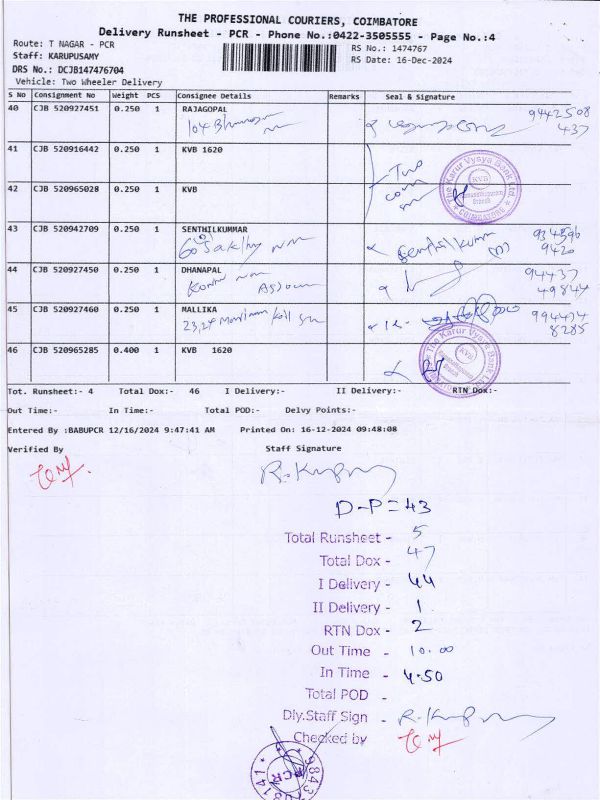 THE PROFESSIONAL COURIERS, COIMBATORE
Delivery Runsheet - PCR - Phone No.:0422-3505555 - Page No.:4
Route: T NAGAR - PCR
RS No.: 1474767
Staff: KARUPUSAMY
RS Date: 16-Dec-2024
DRS No.: DCJB147476704
Vehicle: Two Wheeler Delivery
S No Consignment No Weight PCS Consignee Details Remarks Seal & Signature
40 CJB 520927451 0.250 1 RAJAGOPAL 9442508
104 437
41 CJB 520916442 0.250 1 KVB 1620
Two
42 CJB 520965028 0.250 1 KVB
The Karur Vysya Bank Ltd.
KVB
COIMBATORE
43 CJB 520942709 0.250 1 SENTHILKUMMAR
Senthilkumar
9420
44 CJB 520927450 0.250 1 DHANAPAL 94437
49844
45 CJB 520927460 0.250 1 MALLIKA 994474
23,24 8285
46 CJB 520965285 0.400 1 KVB 1620
The Karur Vysya Bank Ltd.
KVB
Tot. Runsheet:- 4 Total Dox:- 46 I Delivery:- II Delivery:- RTN Dox:-
Out Time:- In Time:- Total POD:- Delvy Points:-
Entered By :BABUPCR 12/16/2024 9:47:41 AM Printed On: 16-12-2024 09:48:08
Verified By Staff Signature
D-P=43
Total Runsheet - 5
Total Dox - 47
I Delivery - 44
II Delivery - 1
RTN Dox - 2
Out Time - 10.00
In Time - 4.50
Total POD -
Dly.Staff Sign -
Checked by
PCR